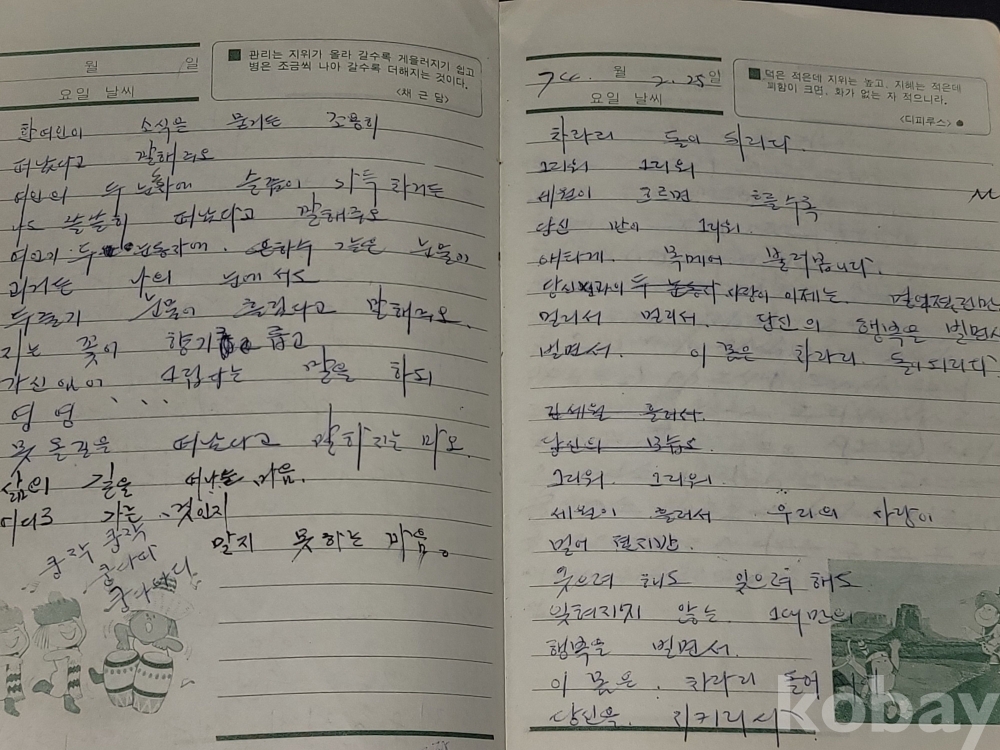 월 일
요일 날씨
■ 관리는 지위가 올라 갈수록 게을러지기 쉽고
병은 조금씩 나아 갈수록 더해지는 것이다.
<채 근 담>
한여인이 소식을 묻거든 조용히
떠났다고 말해주오
여인의 두 슬픔이 가득 하거든
나도 쓸쓸히 떠났다고 말해주오
여인의 두 눈동자에. 눈물이
나의 눈에서도
눈물이 흘렀다고 말해주오.
지는 꽃이 향기롭고
그립다는 말을 하되
영 영 ....
못올길을 떠났다고 말하지는 마오.
삶의 길을 떠나는 마음.
어디로 가는 것인지
말지 못하는 마음.
쿵작 쿵작
74. 월 2. 25일
요일 날씨
■ 먹은 적은데 지위는 높고, 지혜는 적은데
꾀함이 크면, 화가 없는 자 적으니라.
<디피루스> ●
차라리 돌이 되리다.
그리워 그리워
세월이 흐르면 흐를수록
당신 만이 그리워.
애타게. 목메어 불러봅니다.
두 사랑이 이제는.
멀리서 멀리서. 당신의 행복을 빌면서
빌면서. 이 몸은 차라리 돌이되리다
긴세월 흘러서.
당신의
그리워 그리워
세월이 흘러서 우리의 사랑이
멀어 졌지만.
웃으려 해도 잊으려 해도
잊혀지지 않는
행복을 빌면서.
이 몸은. 차라리 돌이
당신을. 지키리다
kobay